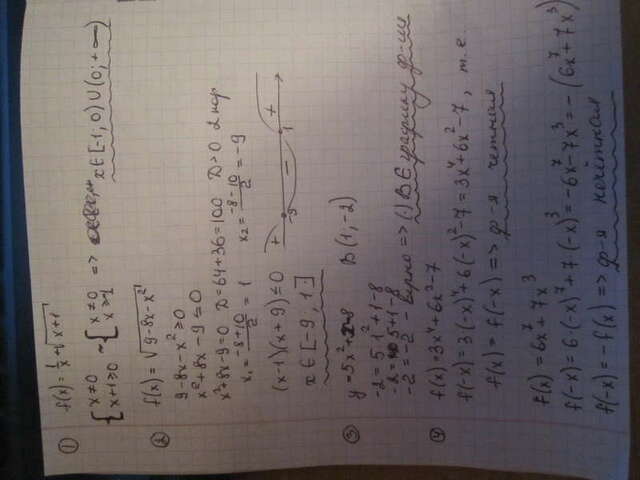 ① f(x) = 1/x + √(x+1)
{ x ≠ 0 ~ { x ≠ 0 => x ∈ [-1; 0) ∪ (0; +∞)
x+1 ≥ 0 x ≥ -1
② f(x) = √(9-8x-x²)
9-8x-x² ≥ 0
x²+8x-9 ≤ 0
x²+8x-9=0 D=64+36=100 D>0 2 кор
x₁ = (-8+10)/2 = 1 x₂ = (-8-10)/2 = -9
(x-1)(x+9) ≤ 0 + -9 - 1 +
x ∈ [-9; 1]
③ y = 5x²+x-8 B(1,-2)
-2 = 5·1²+1-8
-2 = 5+1-8
-2 = -2 - верно => (·) B ∈ графику ф-ии
④ f(x) = 3x⁴+6x²-7
f(-x) = 3(-x)⁴+6(-x)²-7 = 3x⁴+6x²-7, т.е.
f(x) = f(-x) => ф-я четная
f(x) = 6x⁷+7x³
f(-x) = 6·(-x)⁷+7(-x)³ = -6x⁷-7x³ = -(6x⁷+7x³)
f(-x) = -f(x) => ф-я нечётная